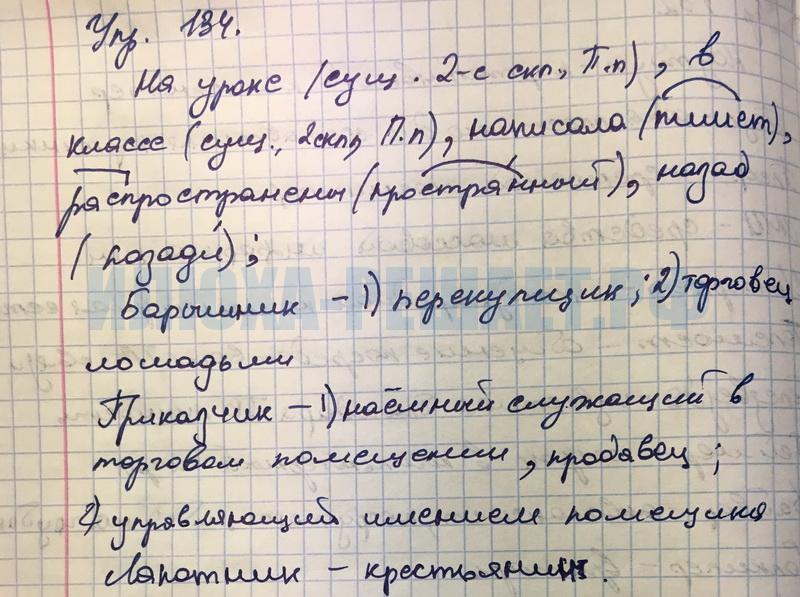 Упр. 134.
На уроке (сущ. 2-е скл., П.п), в
классе (сущ., 2скл, П.п), написала (пишет),
распространены (пространный), назад
(позади́);
ИЛЮХА-РЕШАЕТ.РФ
Барышник – 1) перекупщик; 2) торговец
лошадьми
Приказчик – 1) наёмный служащий в
торговом помещении, продавец;
2) управляющий имением помещика
Лапотник – крестьянин.